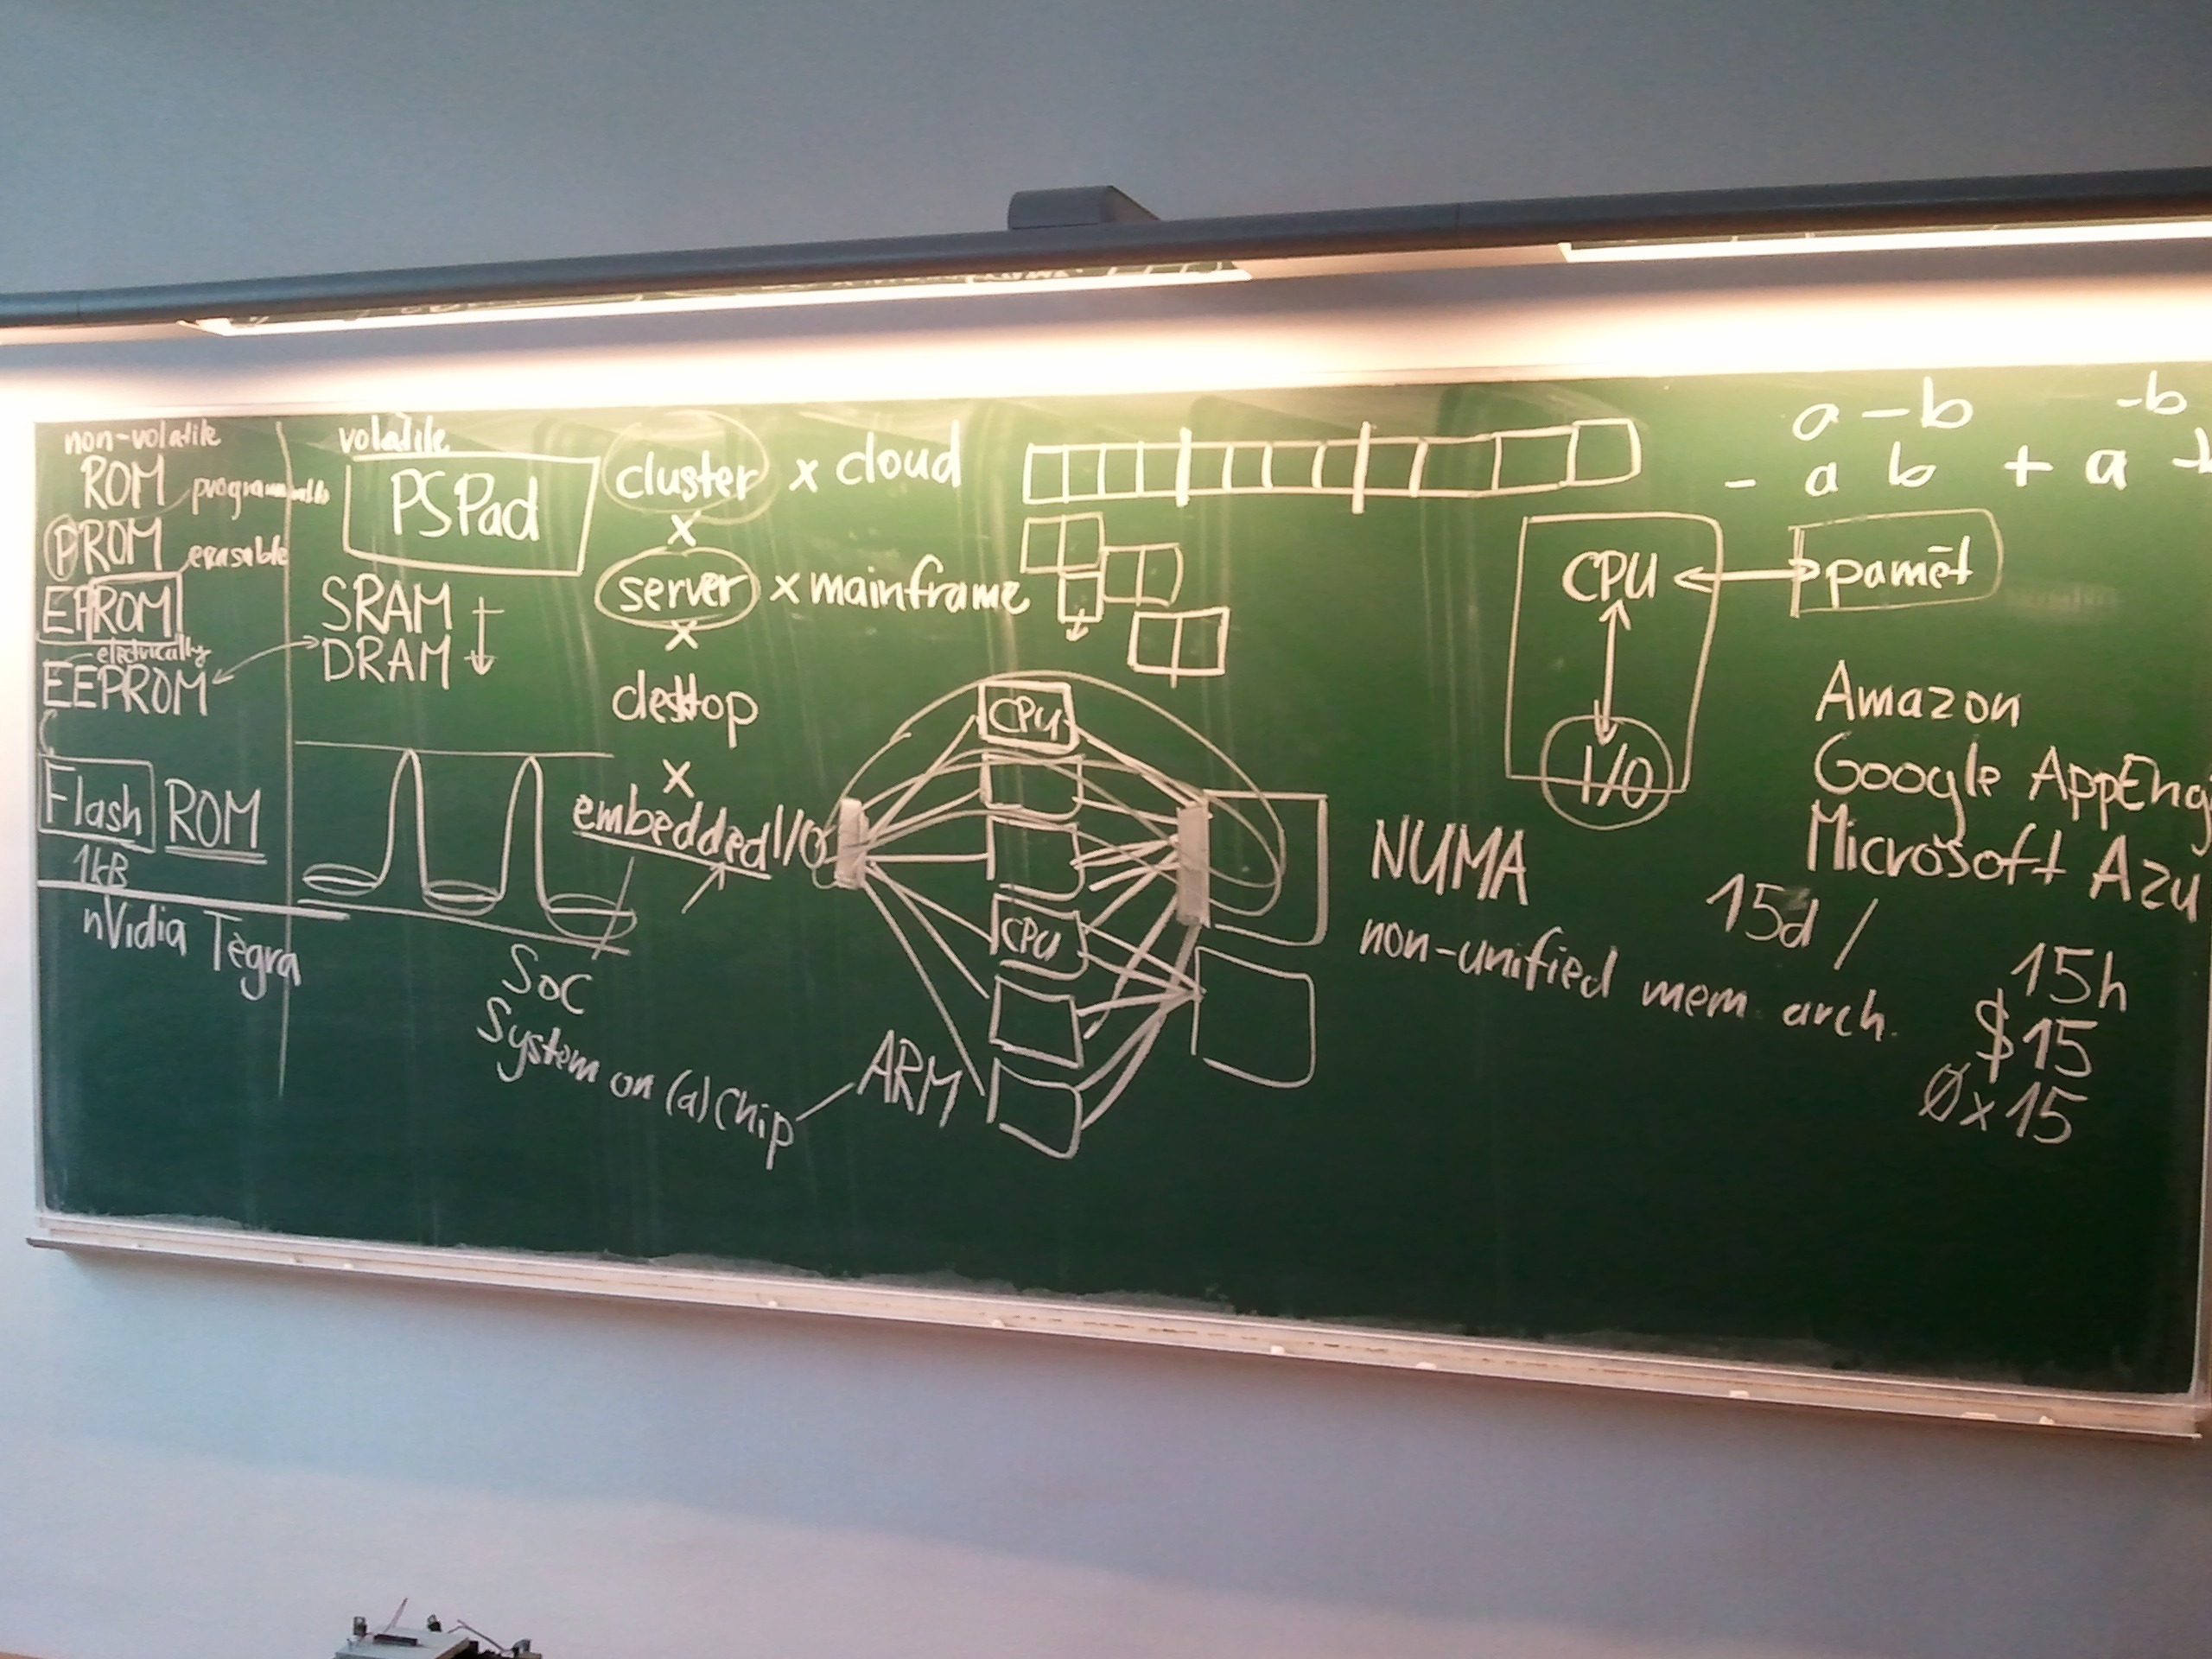 non-volatile
ROM programmable
PROM erasable
EPROM
electrically
EEPROM
Flash ROM
1kB
nVidia Tegra
volatile
PSPad
SRAM
DRAM
cluster x cloud
x
server x mainframe
x
desktop
x
embedded
SoC
System on (a) Chip
ARM
I/O
CPU
CPU
NUMA
non-unified mem. arch.
a - b -b
- a b + a
CPU
pamět
I/O
Amazon
Google AppEng
Microsoft Azu
15d /
15h
$15
0x15